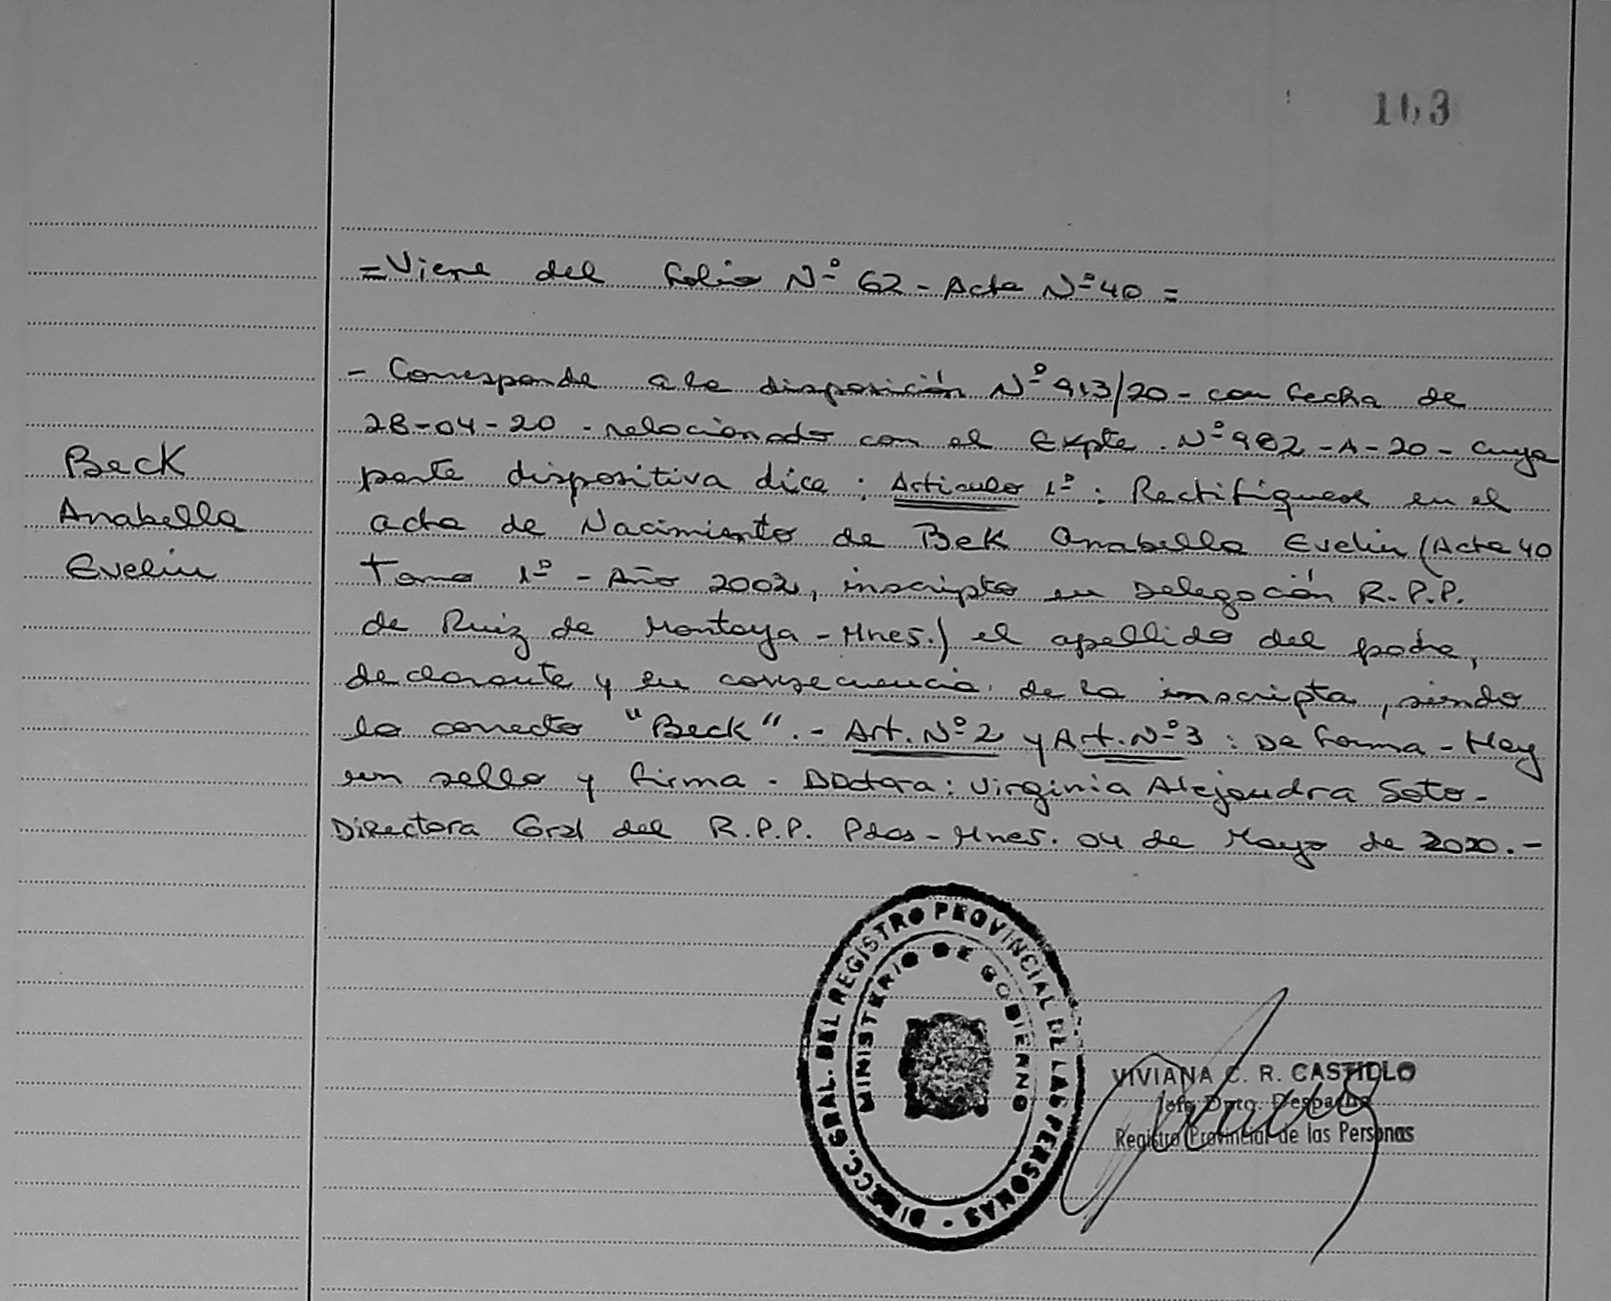 103
=Viene del folio Nº 62 - Acta Nº 40 =
- Corresponde a la disposición Nº 913/20 - con fecha de
28-04-20 - relacionado con el Expte. Nº 982 - A - 20 - cuya
parte dispositiva dice : Articulo 1º : Rectifiquese en el
Beck
Anabella
Evelin
acta de Nacimiento de Bek Anabella Evelin (Acta 40
Tomo 1º - Año 2002, inscripto en Delegación R.P.P.
de Ruiz de Montoya - Mnes.) el apellido del padre,
declarante y en consecuencia de la inscripta, siendo
lo correcto "Beck". - Art. Nº 2 y Art. Nº 3 : De forma - Hay
un sello y firma - Doctora : Virginia Alejandra Soto -
Directora Gral del R.P.P. Pdas - Mnes. 04 de Mayo de 2020.-
DIRECC. GRAL. DEL REGISTRO PROVINCIAL DE LAS PERSONAS -
MINISTERIO DE GOBIERNO
VIVIANA C. R. CASTILLO
Jefe Dpto. Despacho
Registro Provincial de las Personas